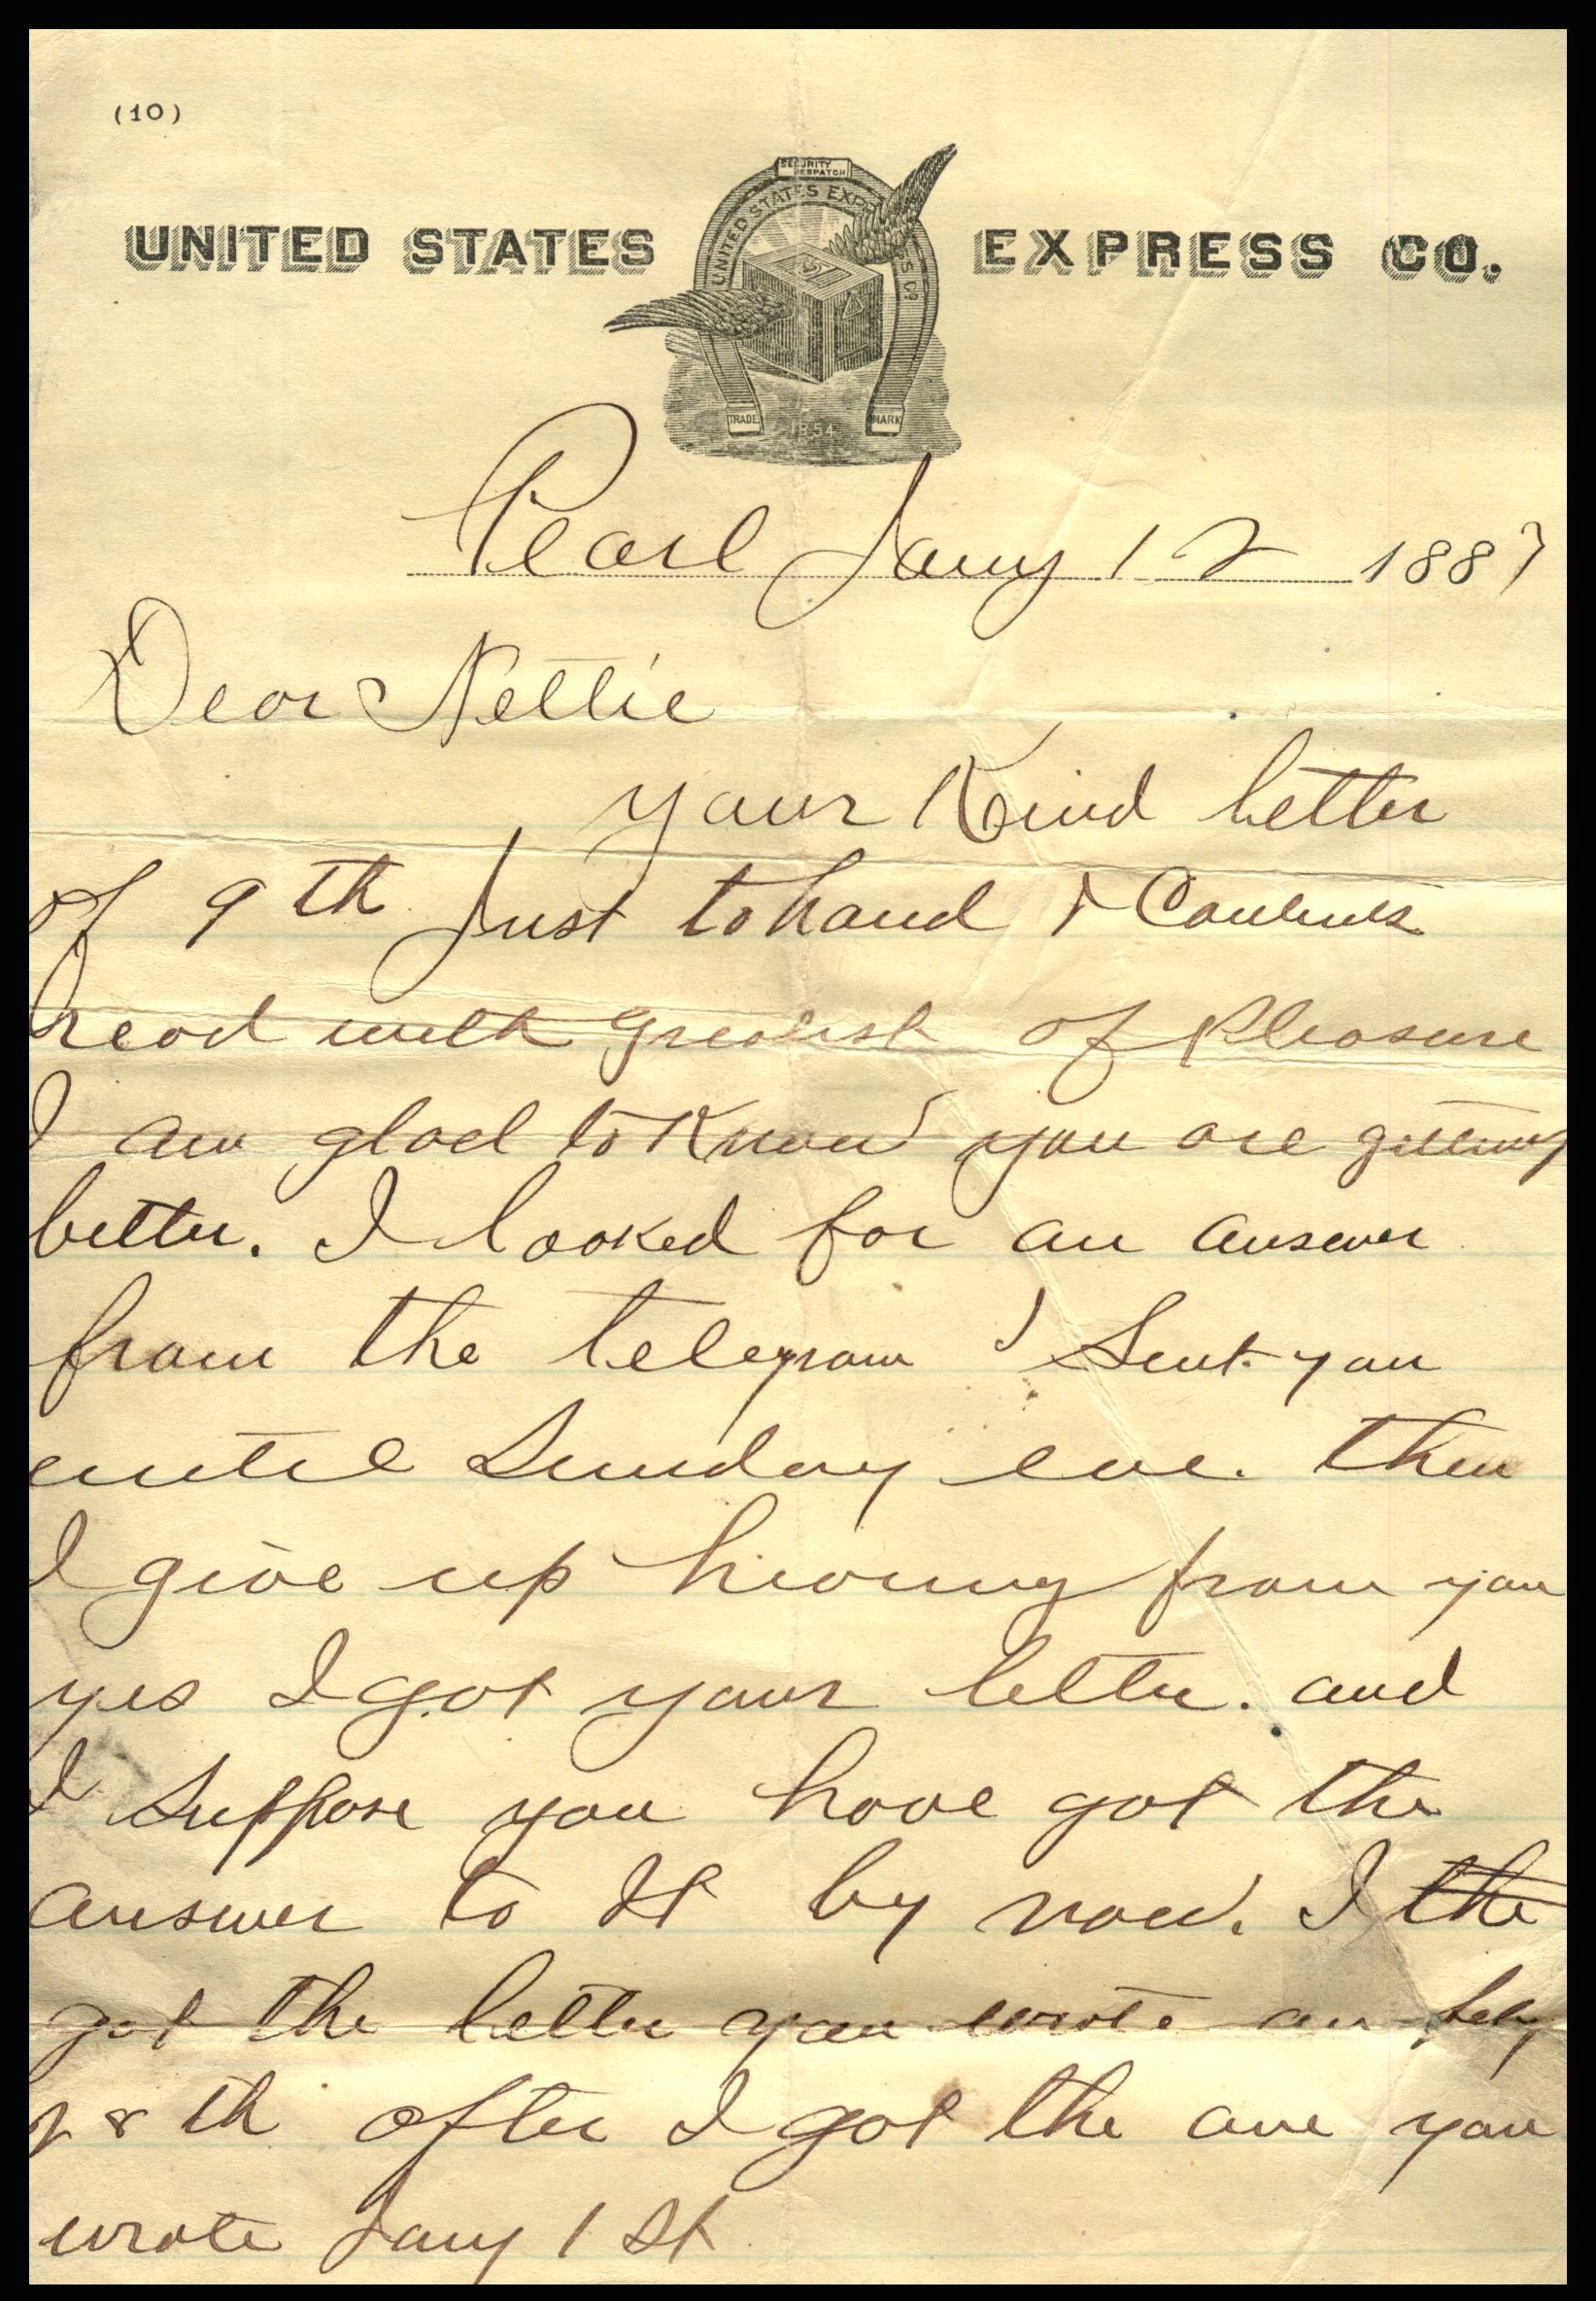 (10)
SECURITY
DESPATCH
UNITED STATES EXPRESS CO.
UNITED STATES EXPRESS CO.
TRADE MARK
1854
Pearl Jany 12 1887
Dear Nettie
your Kind letter
of 9th Just to hand & Contents
read with greatest of Pleasure
I am glad to Know you are getting
better. I looked for an answer
from the telegram I Sent you
until Sunday eve. then
I give up hearing from you
yes I got your letter. and
I Suppose you have got the
answer to It by now. I the
got the letter you wrote on
28th after I got the one you
wrote Jany 1st